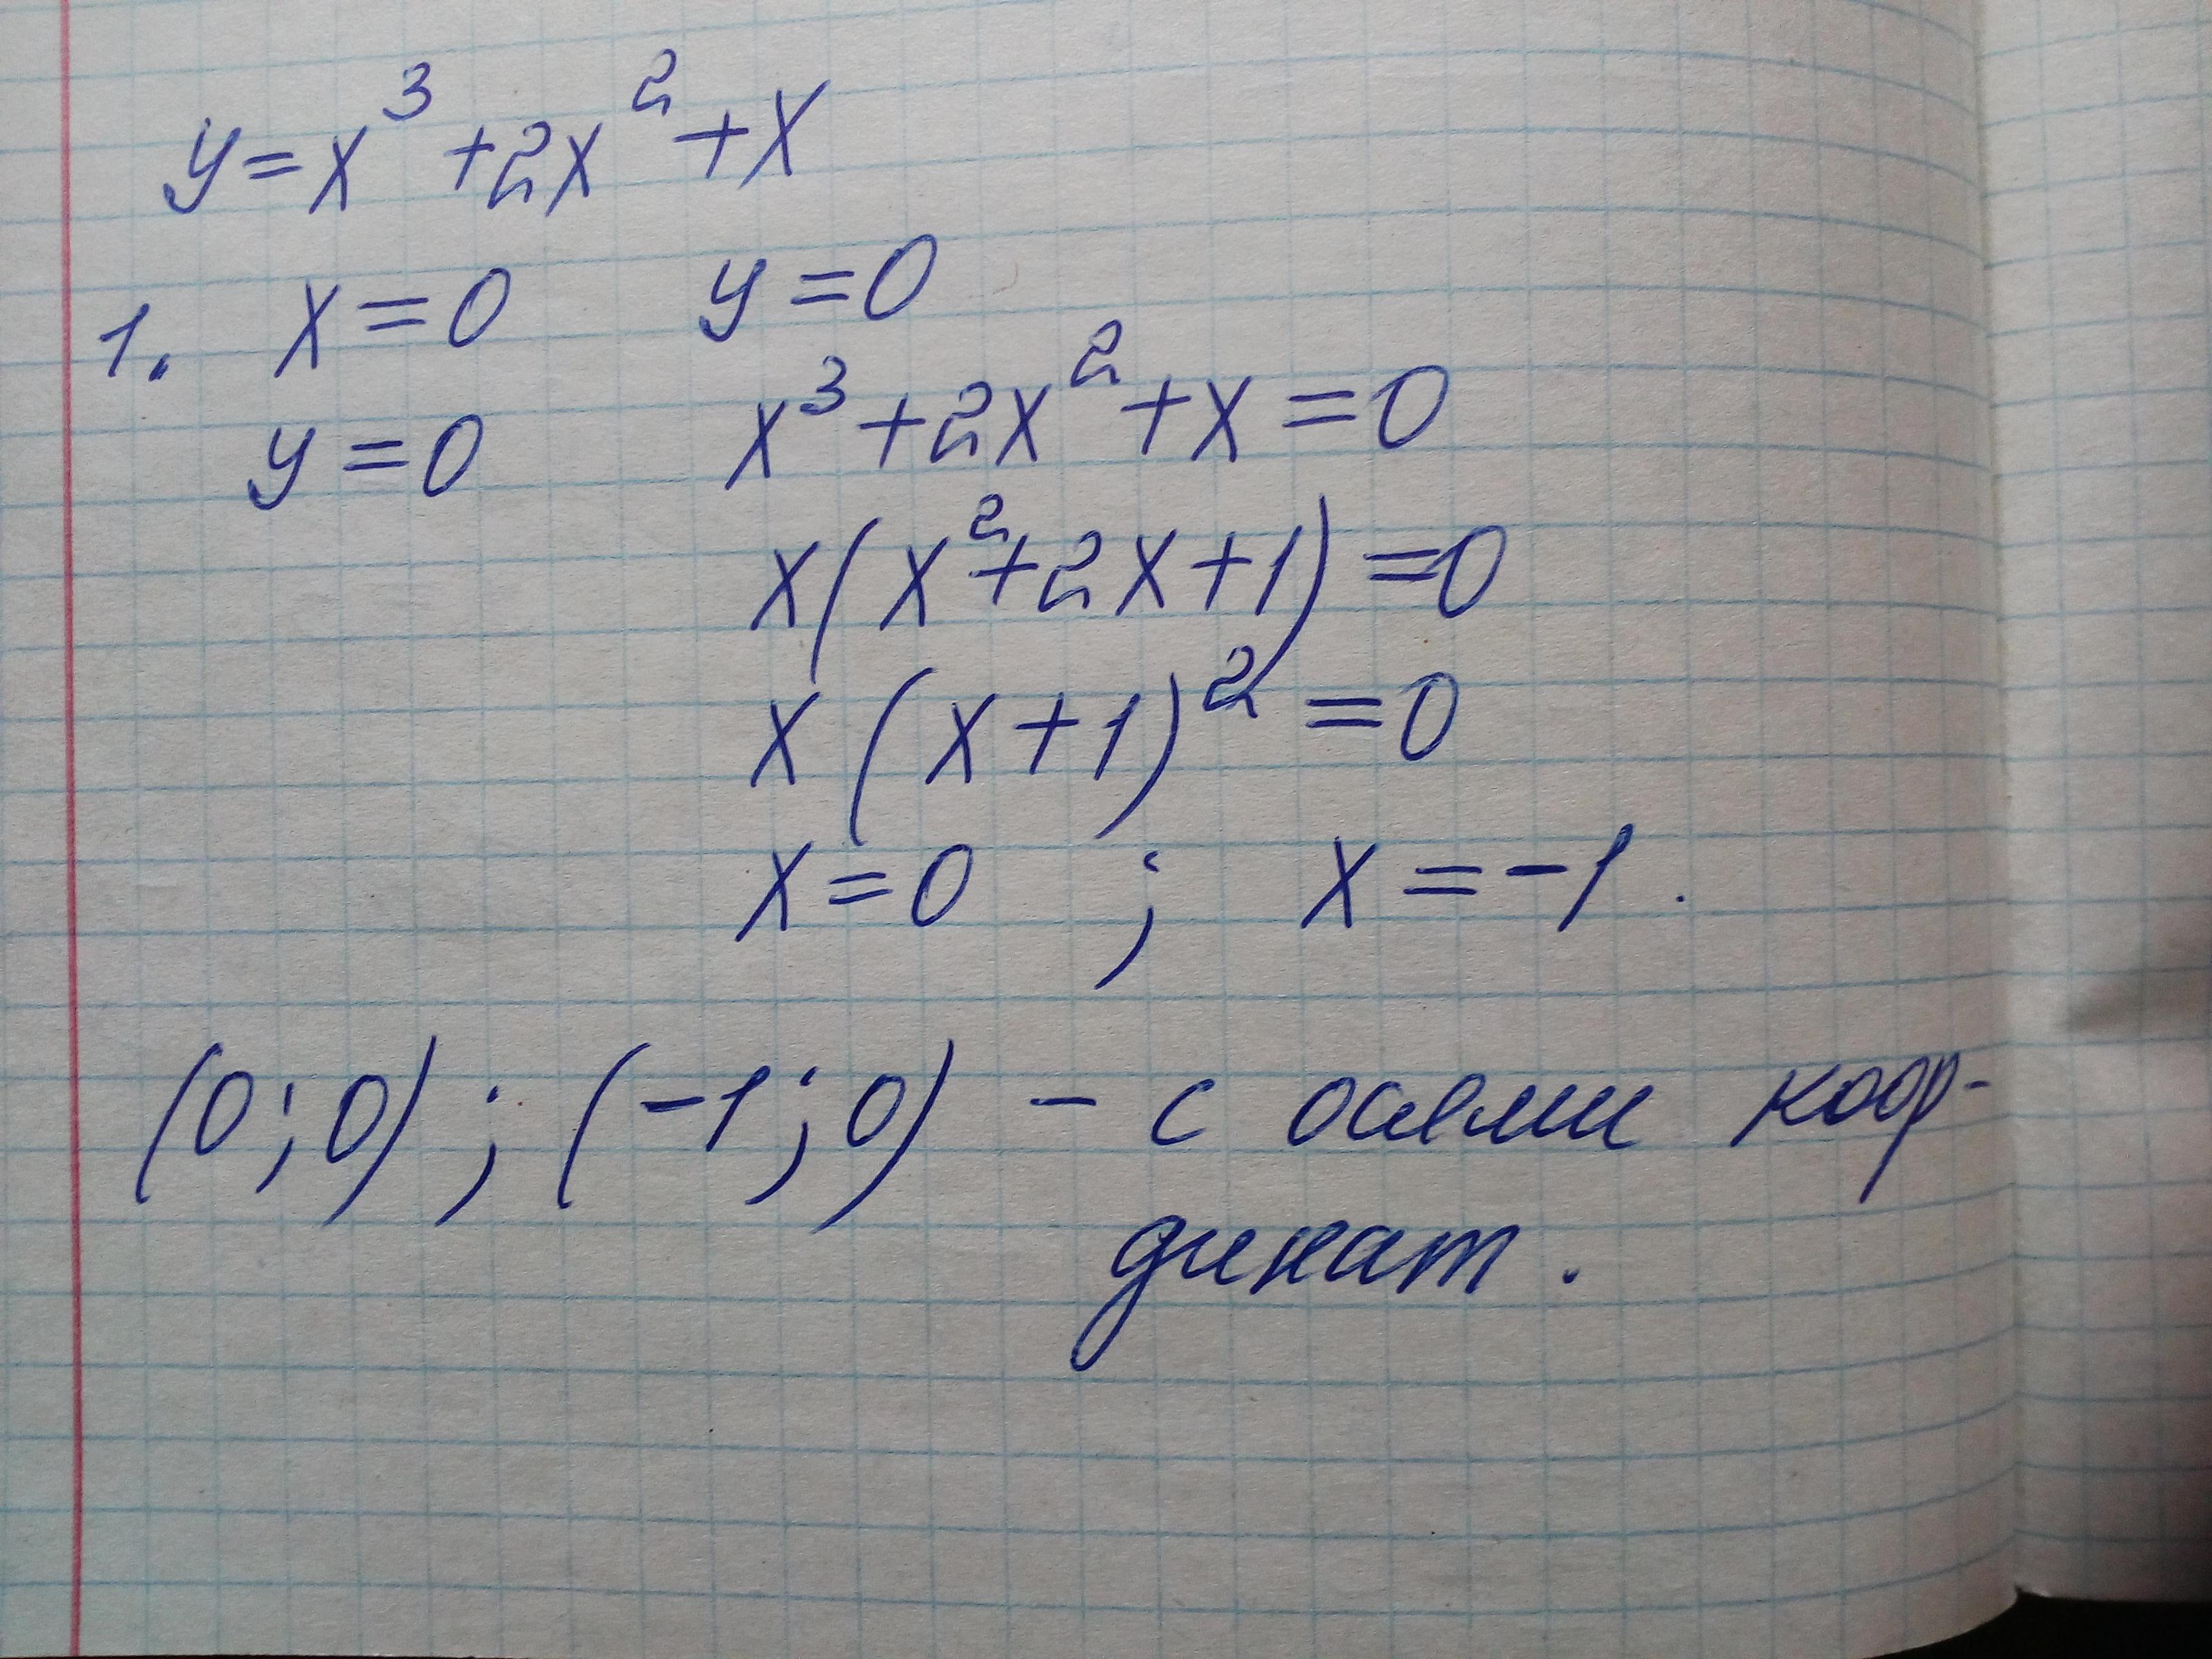 y=x³+2x²+x
1. x=0 y=0
y=0 x³+2x²+x=0
x(x²+2x+1)=0
x(x+1)²=0
x=0 ; x=-1.
(0;0); (-1;0) - с осями коор-
динат.